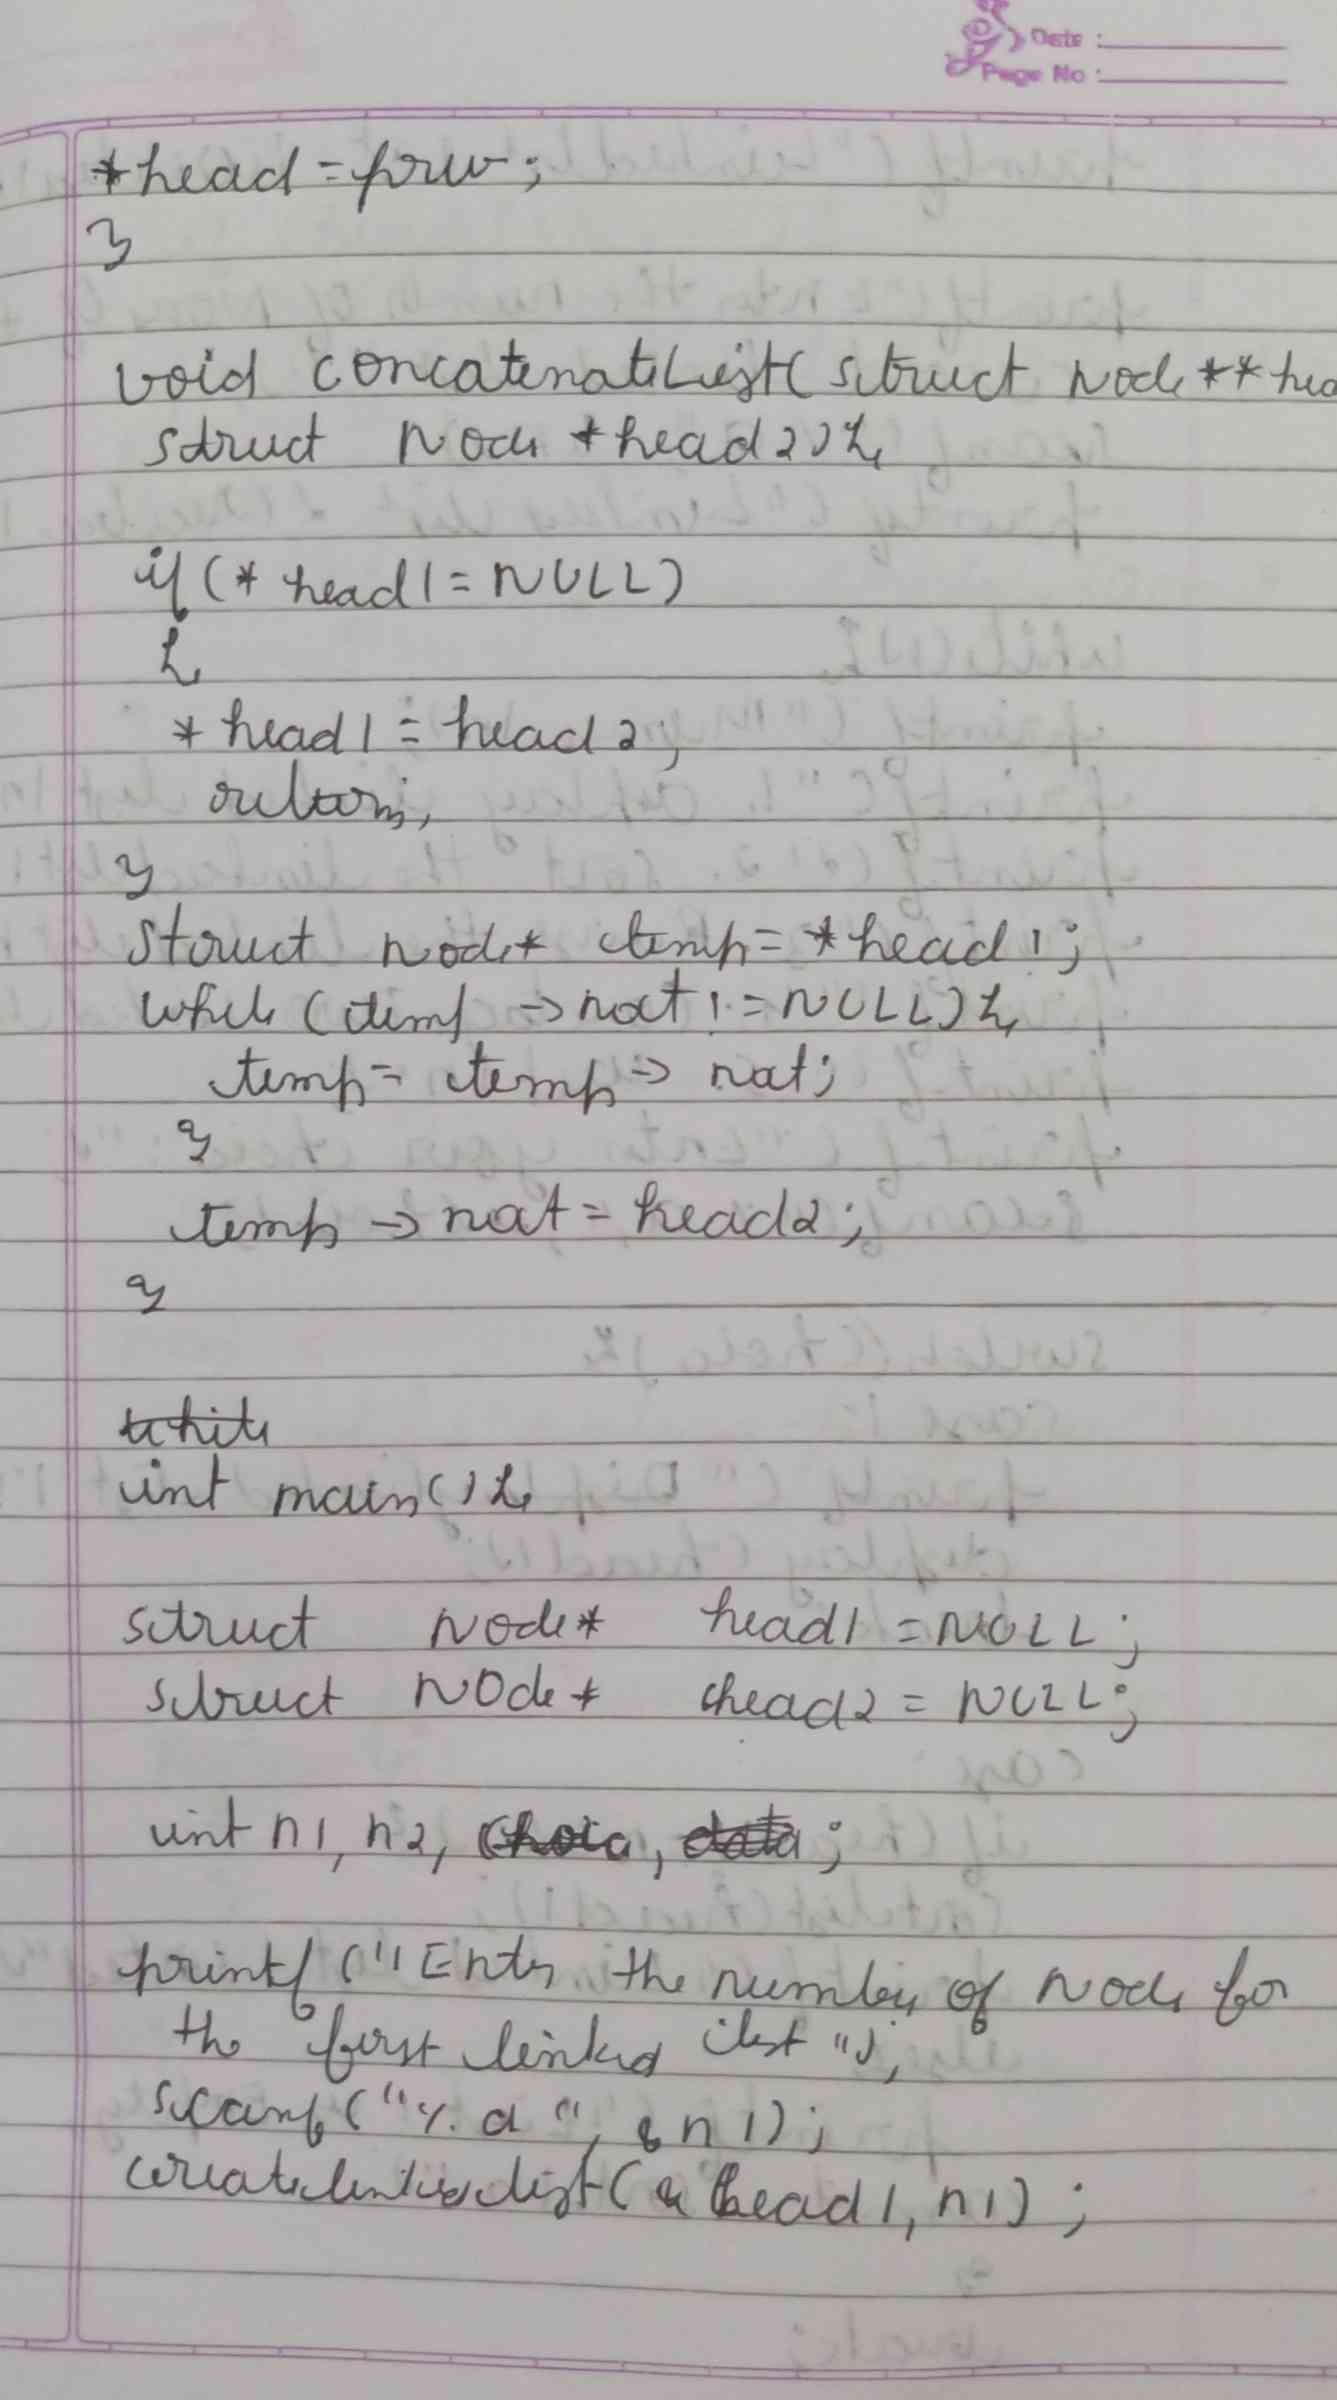 Date :
Page No :
*head = prev;
}
void concatenateList( struct Node **hea
struct Node *head2){
if (* head1 = NULL)
{
* head1 = head2;
return;
}
struct node* temp = *head1;
while (temp -> next != NULL){
temp = temp -> next;
}
temp -> next = head2;
}
while
int main(){
struct Node* head1 = NULL;
struct Node* head2 = NULL;
int n1, n2, choice, data;
printf ("Enter the number of Node for
the first linked list ");
scanf ("%d", &n1);
createlinkedlist(&head1, n1);